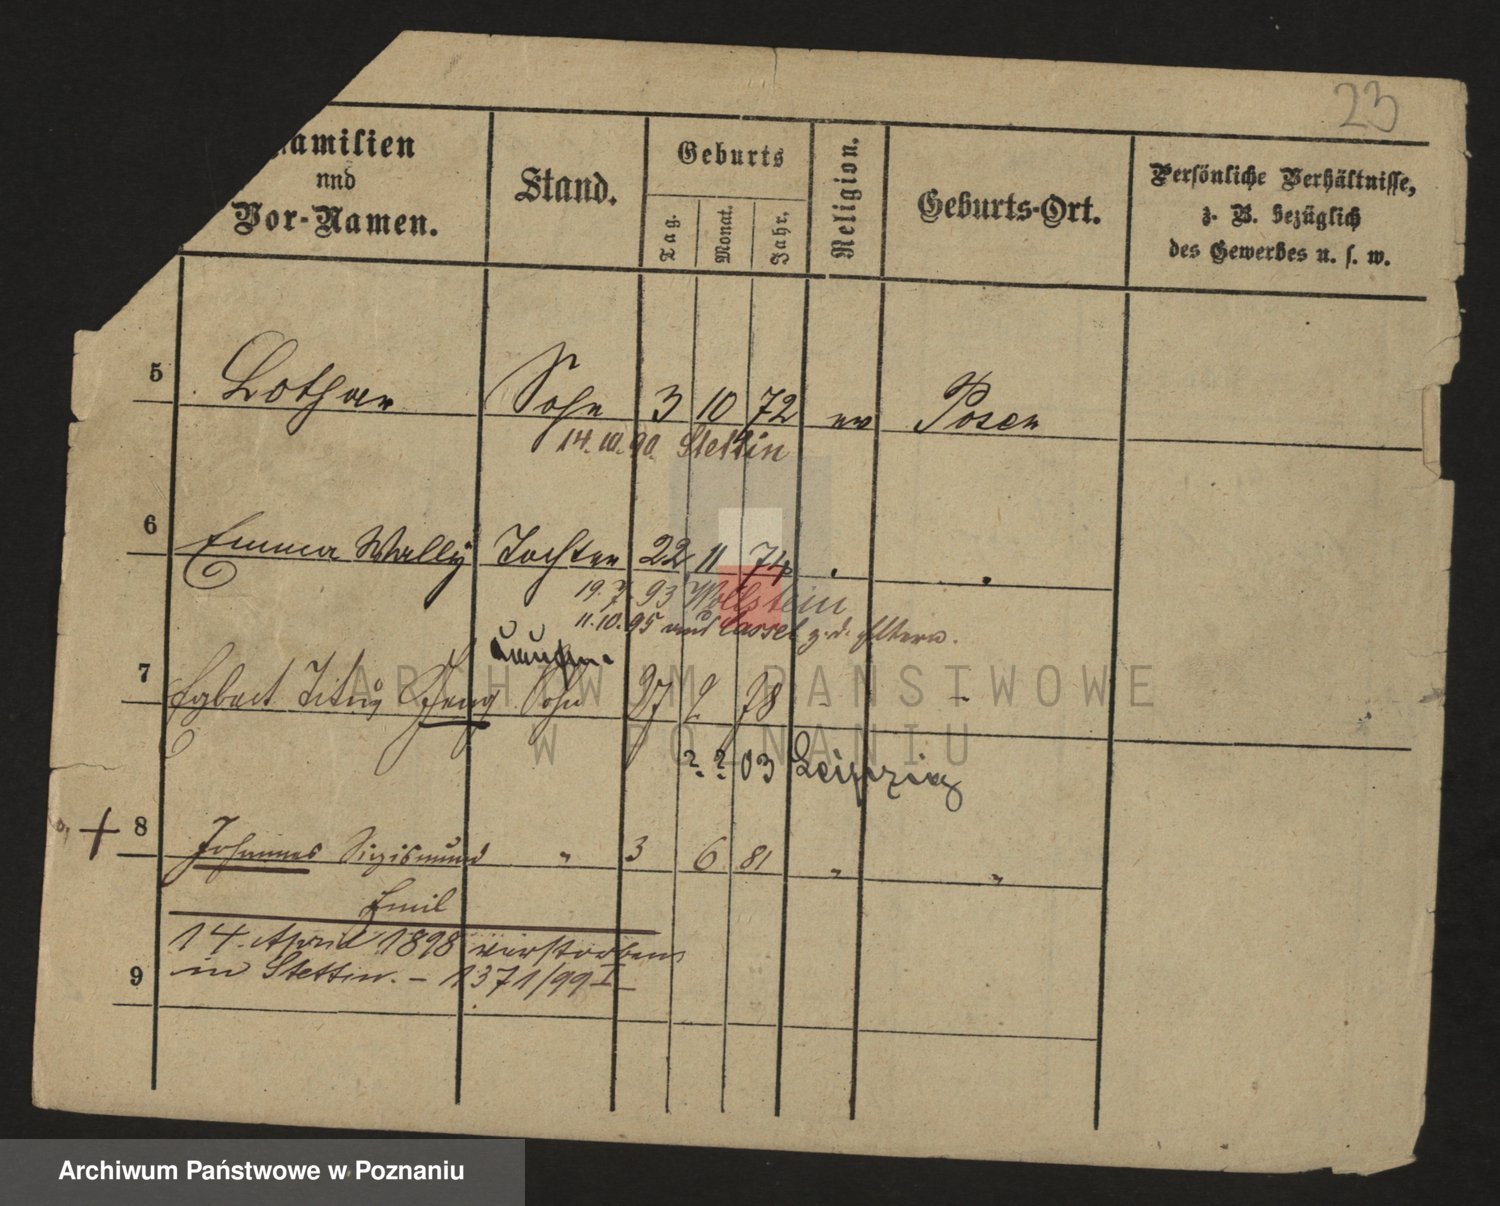 23
Familien
und
Vor-Namen.
Stand.
Geburts
Tag.
Monat.
Jahr.
Religion.
Geburts-Ort.
Persönliche Verhältnisse,
z. B. bezüglich
des Gewerbes u. s. w.
5 Lothar Sohn 3 10 72 ev Posen
14.10.90. Stettin
6 Emma Wally Tochter 22 11 74 . .
19.7.93 Wollstein
11.10.95 aus Cassel z. d. Eltern.
7 Egbert Titus Sohn 27 9 78 - -
? ? 03 Leipzig
ARCHIWUM PAŃSTWOWE
W POZNANIU
+ 8 Johannes Sigismund " 3 6 81 " "
Emil
14. April 1898 verstorben
in Stettin. – 1371/99 I –
9
Archiwum Państwowe w Poznaniu